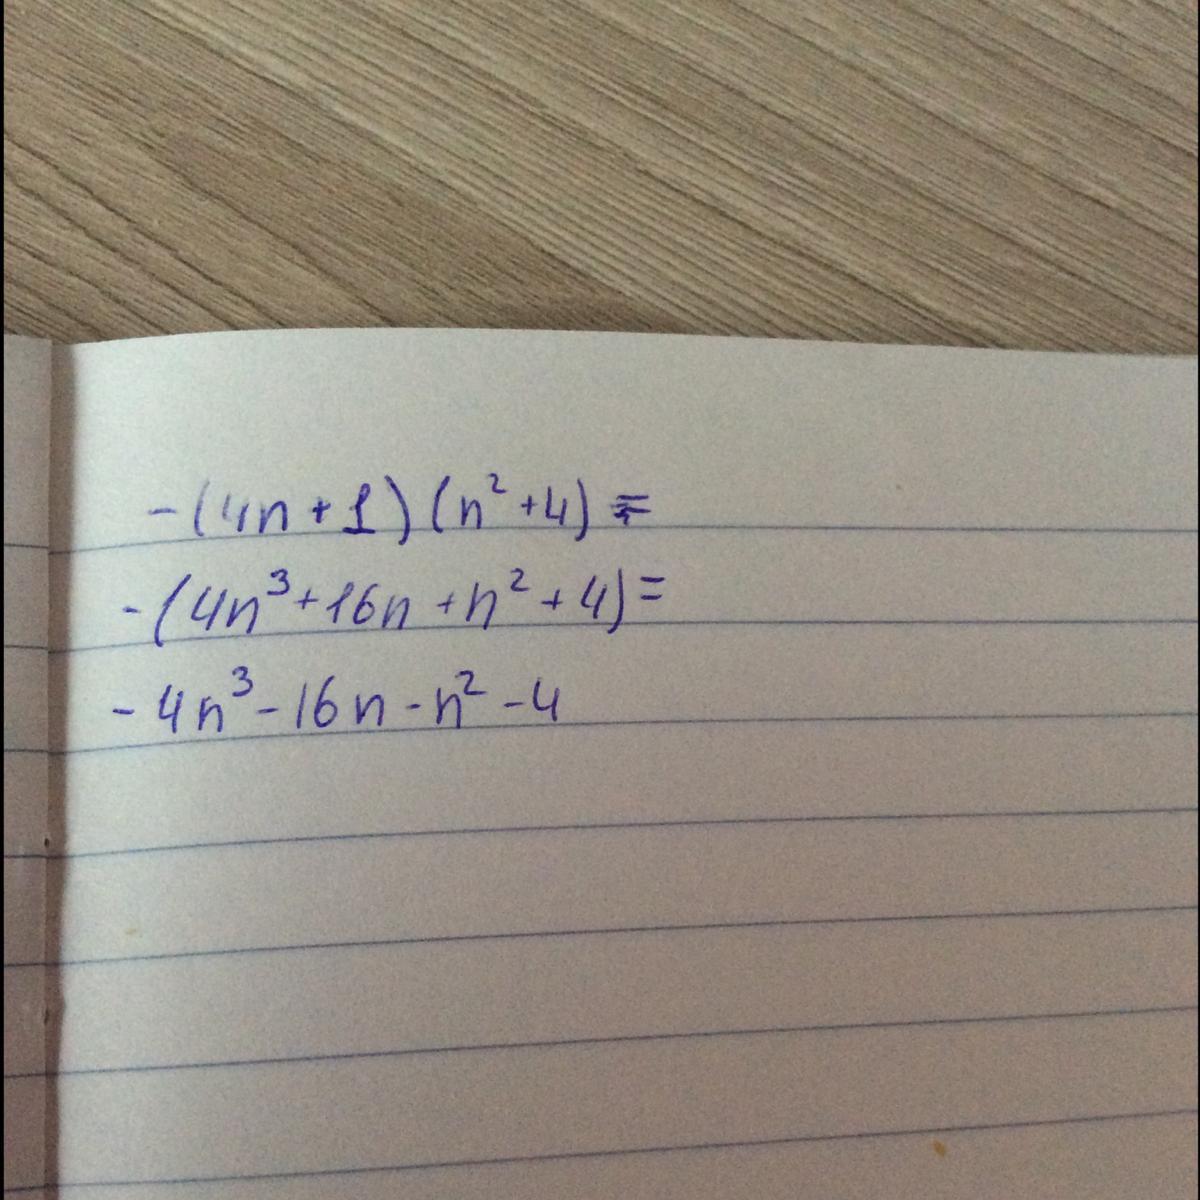 -(4n+1)(n²+4)=
-(4n³+16n+n²+4)=
-4n³-16n-n²-4